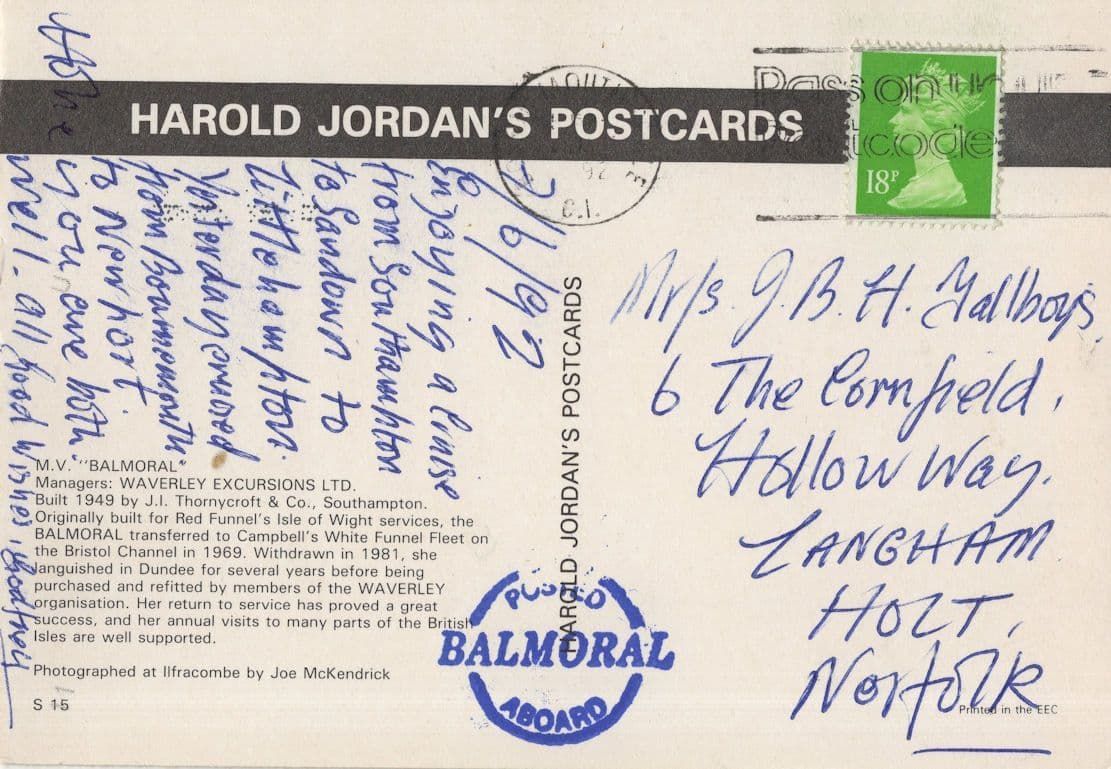 HAROLD JORDAN'S POSTCARDS
Pass on
code
18P
92
C.I.
/6/92
Enjoying a Cruise
from Southampton
to Sandown to
Littlehampton.
Yesterday cruised
from Bournemouth
to Newport.
Hope
you are both
well. all good wishes,
Mr/s. J. B. H. Tallboys,
6 The Cornfield,
Hollow Way,
LANGHAM
HOLT,
Norfolk
HAROLD JORDAN'S POSTCARDS
M.V. "BALMORAL"
Managers: WAVERLEY EXCURSIONS LTD.
Built 1949 by J.I. Thornycroft & Co., Southampton.
Originally built for Red Funnel's Isle of Wight services, the
BALMORAL transferred to Campbell's White Funnel Fleet on
the Bristol Channel in 1969. Withdrawn in 1981, she
languished in Dundee for several years before being
purchased and refitted by members of the WAVERLEY
organisation. Her return to service has proved a great
success, and her annual visits to many parts of the British
Isles are well supported.
Photographed at Ilfracombe by Joe McKendrick
S 15
POSTED
BALMORAL
ABOARD
Printed in the EEC